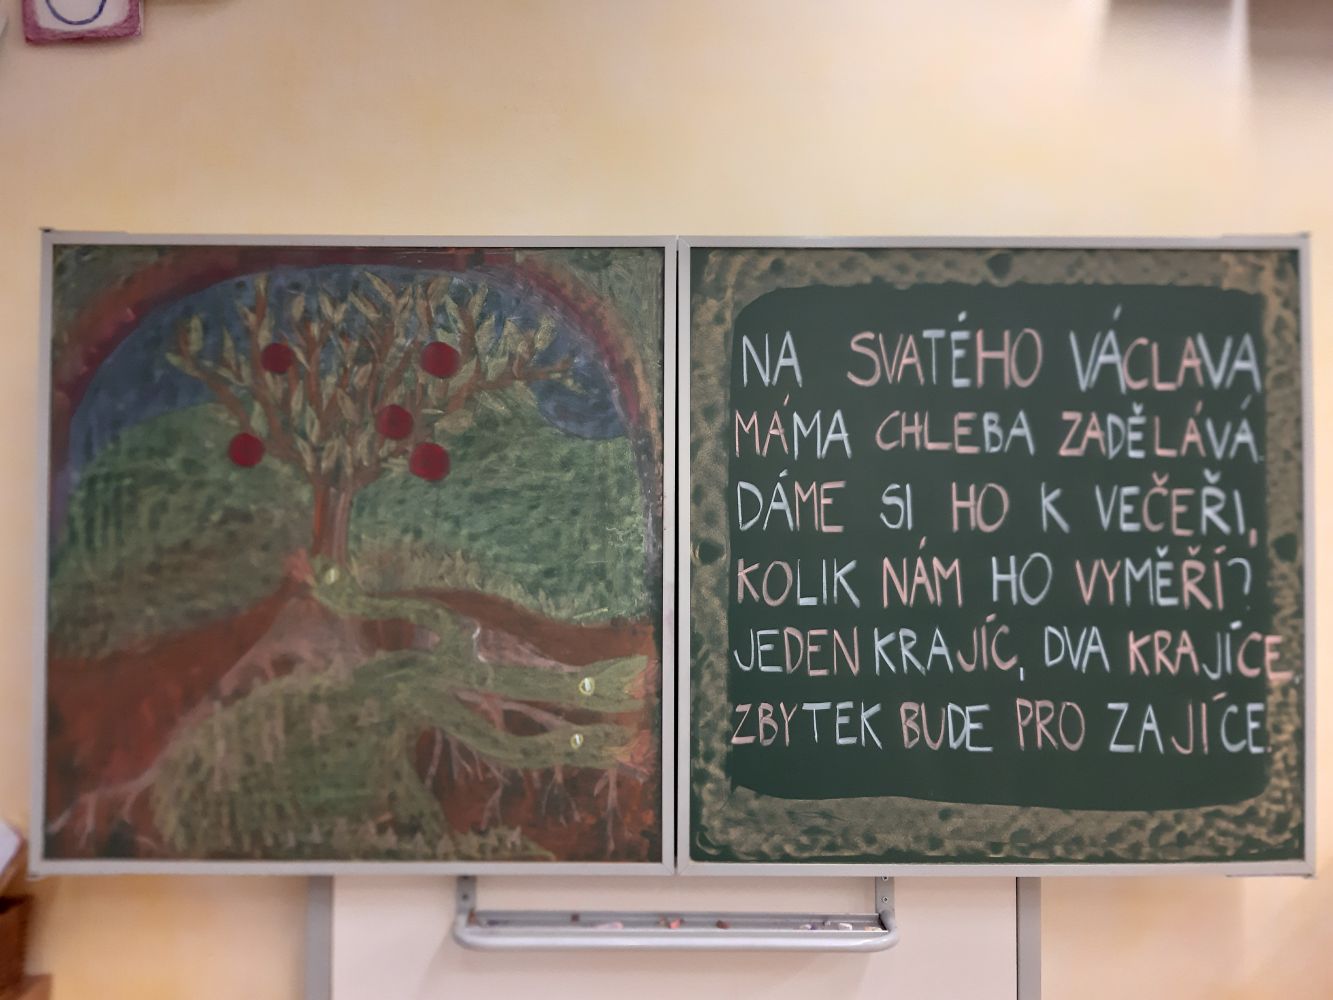 NA SVATÉHO VÁCLAVA
MÁMA CHLEBA ZADĚLÁVÁ.
DÁME SI HO K VEČEŘI,
KOLIK NÁM HO VYMĚŘÍ?
JEDEN KRAJÍC, DVA KRAJÍCE.
ZBYTEK BUDE PRO ZAJÍCE.